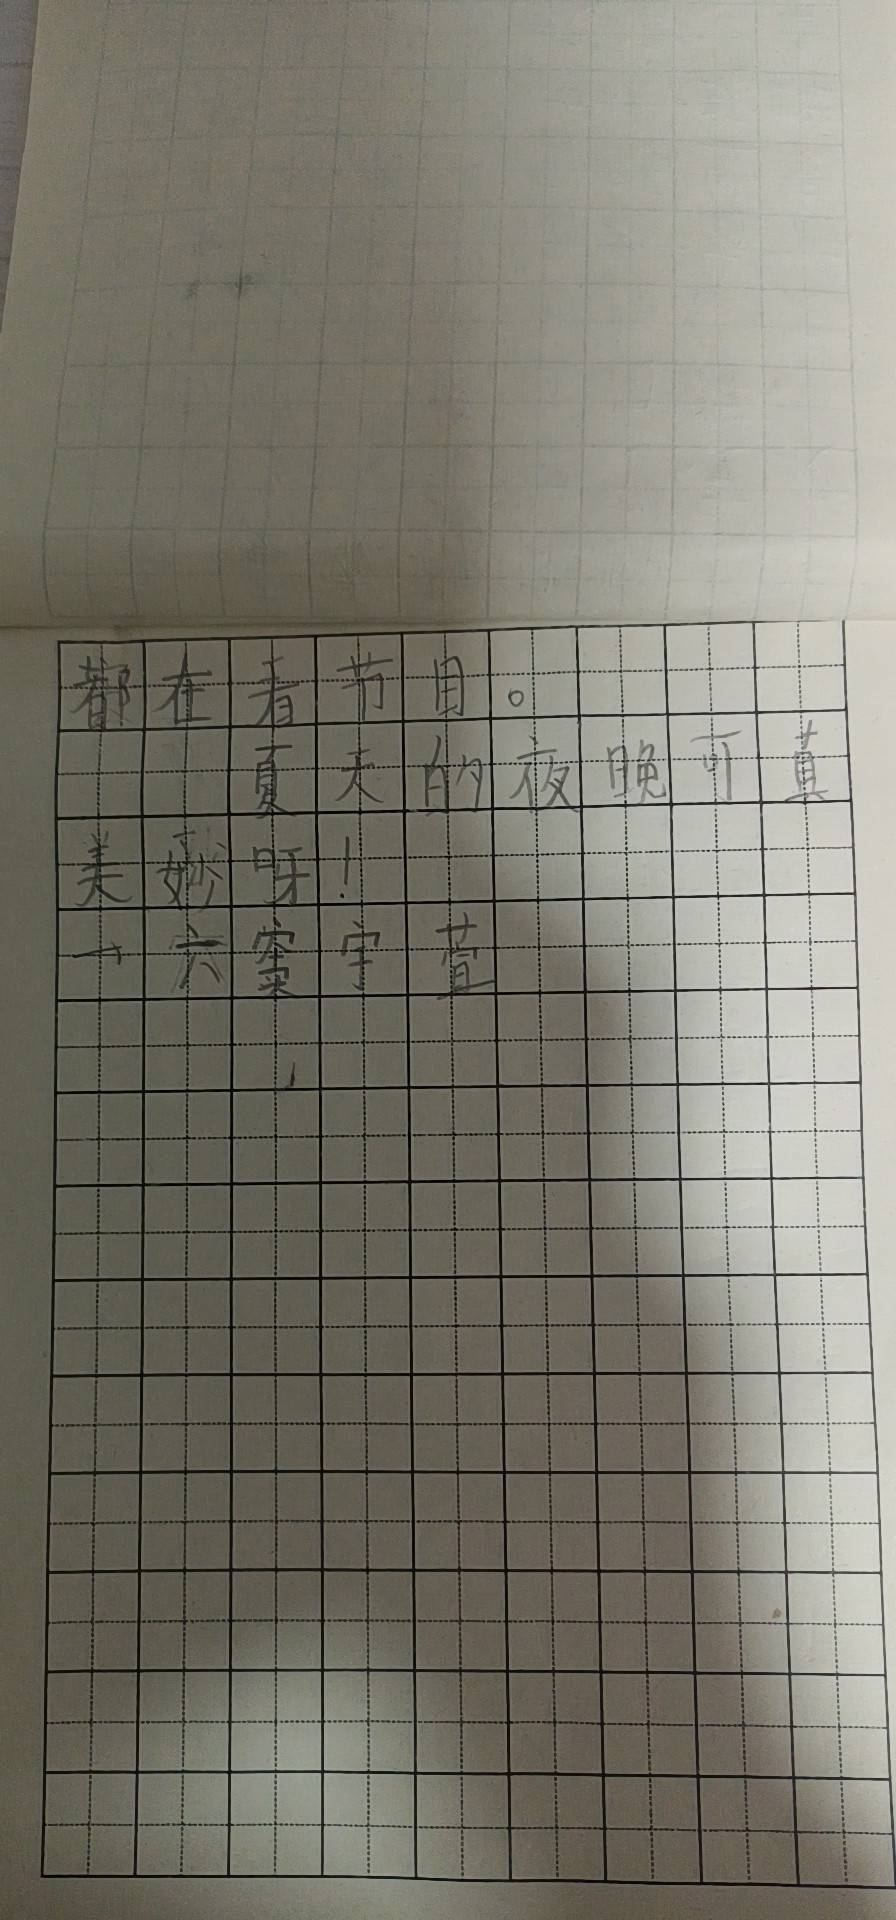 都在看节目。
夏天的夜晚可真
美妙呀！
一六窦宇萱